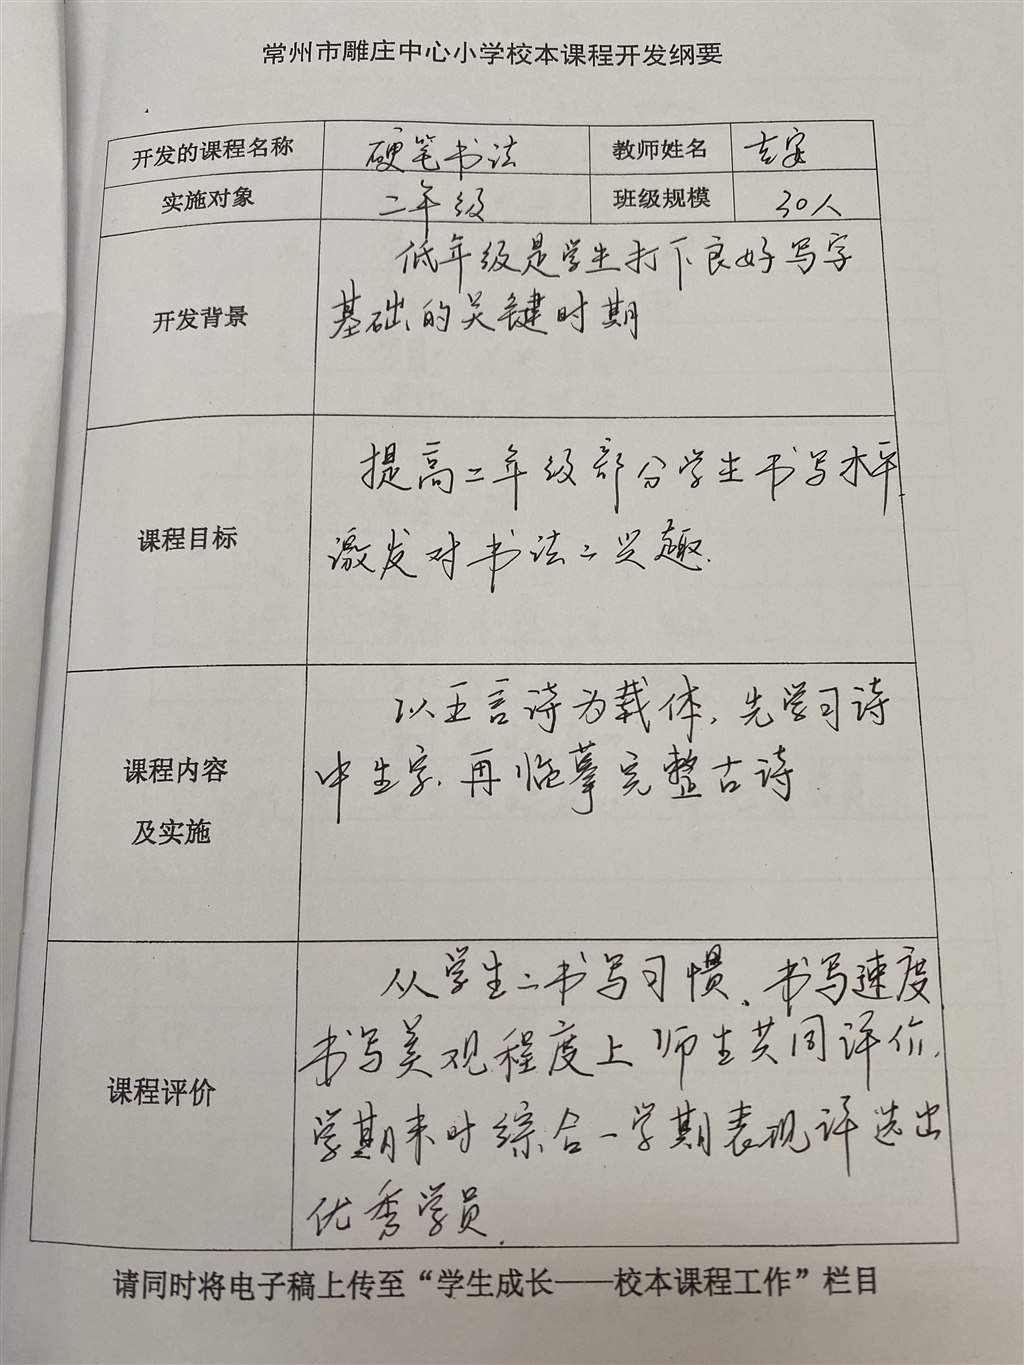 常州市雕庄中心小学校本课程开发纲要
开发的课程名称 硬笔书法 教师姓名 吉安
实施对象 二年级 班级规模 30人
开发背景
低年级是学生打下良好写字
基础的关键时期
课程目标
提高二年级部分学生书写水平,
激发对书法的兴趣.
课程内容
及实施
以五言诗为载体,先学习诗
中生字,再临摹完整古诗
课程评价
从学生的书写习惯、书写速度
书写美观程度上师生共同评价,
学期末时综合一学期表现评选出
优秀学员.
请同时将电子稿上传至“学生成长——校本课程工作”栏目